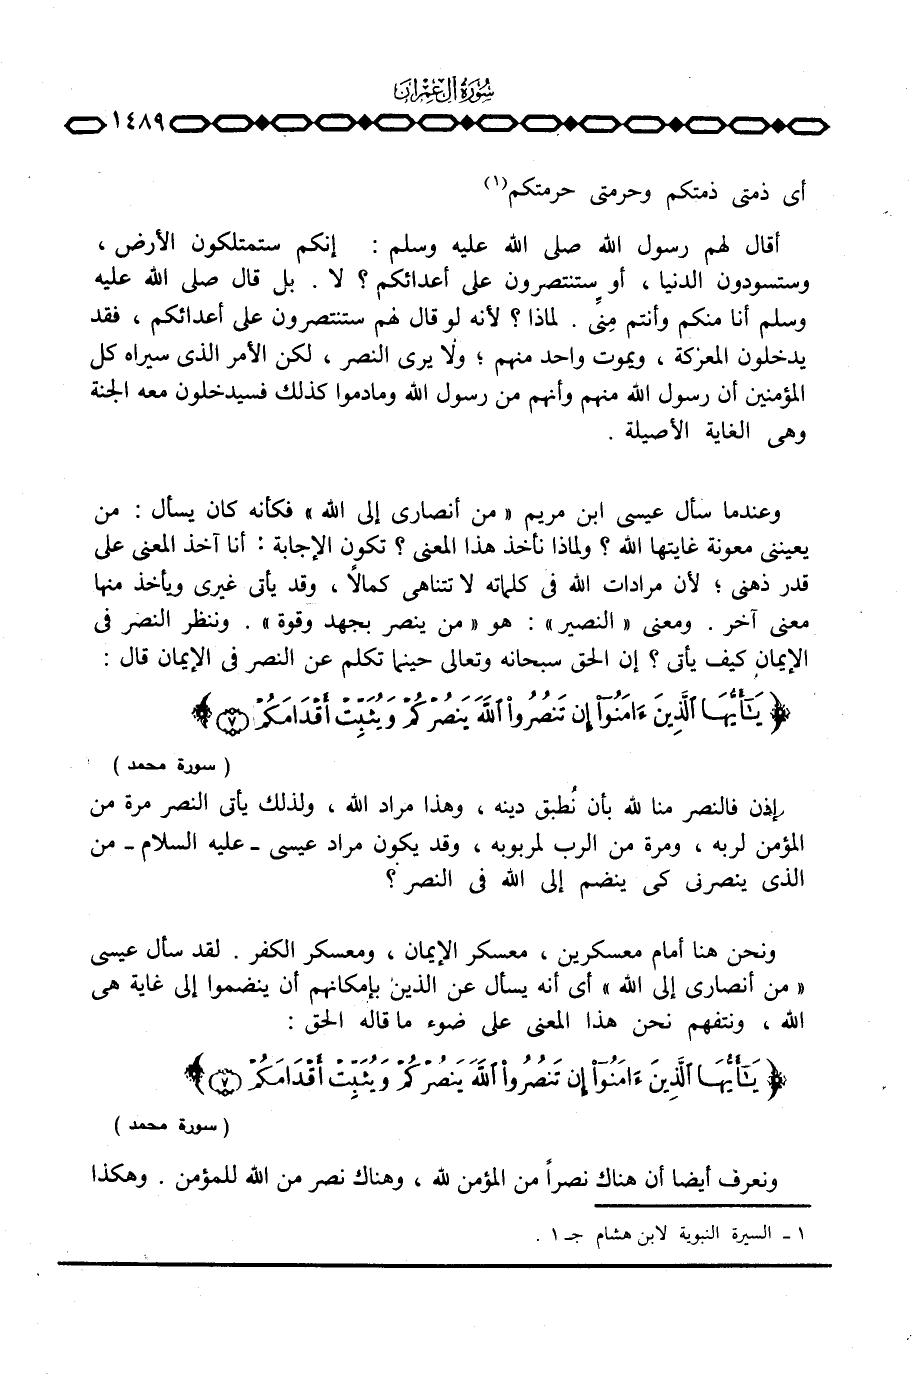 سُورَةُ آلِ عِمْرَانَ
١٤٨٩
أى ذمتى ذمتكم وحرمتى حرمتكم(١)
أقال لهم رسول الله صلى الله عليه وسلم : إنكم ستمتلكون الأرض ،
وستسودون الدنيا ، أو ستنتصرون على أعدائكم ؟ لا . بل قال صلى الله عليه
وسلم أنا منكم وأنتم مِنِّى . لماذا ؟ لأنه لو قال لهم ستنتصرون على أعدائكم ، فقد
يدخلون المعركة ، ويموت واحد منهم ؛ ولا يرى النصر ، لكن الأمر الذى سيراه كل
المؤمنين أن رسول الله منهم وأنهم من رسول الله ومادموا كذلك فسيدخلون معه الجنة
وهى الغاية الأصيلة .
وعندما سأل عيسى ابن مريم « من أنصارى إلى الله » فكأنه كان يسأل : من
يعيننى معونة غايتها الله ؟ ولماذا نأخذ هذا المعنى ؟ تكون الإجابة : أنا آخذ المعنى على
قدر ذهنى ؛ لأن مرادات الله فى كلماته لا تتناهى كمالًا ، وقد يأتى غيرى ويأخذ منها
معنى آخر . ومعنى « النصير » : هو « من ينصر بجهد وقوة » . وننظر النصر فى
الإيمان كيف يأتى ؟ إن الحق سبحانه وتعالى حينما تكلم عن النصر فى الإيمان قال :
﴿ يَـٰٓأَيُّهَا ٱلَّذِينَ ءَامَنُوٓا۟ إِن تَنصُرُوا۟ ٱللَّهَ يَنصُرْكُمْ وَيُثَبِّتْ أَقْدَامَكُمْ ٧ ﴾
( سورة محمد )
إذن فالنصر منا لله بأن نُطبق دينه ، وهذا مراد الله ، ولذلك يأتى النصر مرة من
المؤمن لربه ، ومرة من الرب لمربوبه ، وقد يكون مراد عيسى ـ عليه السلام ـ من
الذى ينصرنى كى ينضم إلى الله فى النصر ؟
ونحن هنا أمام معسكرين ، معسكر الإيمان ، ومعسكر الكفر . لقد سأل عيسى
« من أنصارى إلى الله » أى أنه يسأل عن الذين بإمكانهم أن ينضموا إلى غاية هى
الله ، ونتفهم نحن هذا المعنى على ضوء ما قاله الحق :
﴿ يَـٰٓأَيُّهَا ٱلَّذِينَ ءَامَنُوٓا۟ إِن تَنصُرُوا۟ ٱللَّهَ يَنصُرْكُمْ وَيُثَبِّتْ أَقْدَامَكُمْ ٧ ﴾
( سورة محمد )
ونعرف أيضا أن هناك نصراً من المؤمن لله ، وهناك نصر من الله للمؤمن . وهكذا
١ ـ السيرة النبوية لابن هشام جـ ١ .